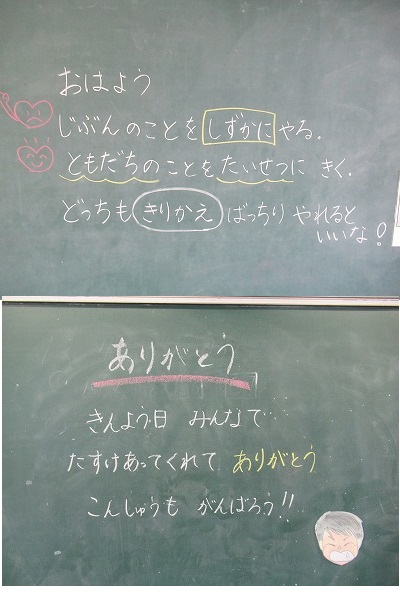 おはよう
じぶんのことを しずかに やる.
ともだちの ことを たいせつに きく.
どっちも きりかえ ばっちり やれると
いいな!
ありがとう
きんよう日 みんなで
たすけあってくれて ありがとう
こんしゅうも がんばろう!!